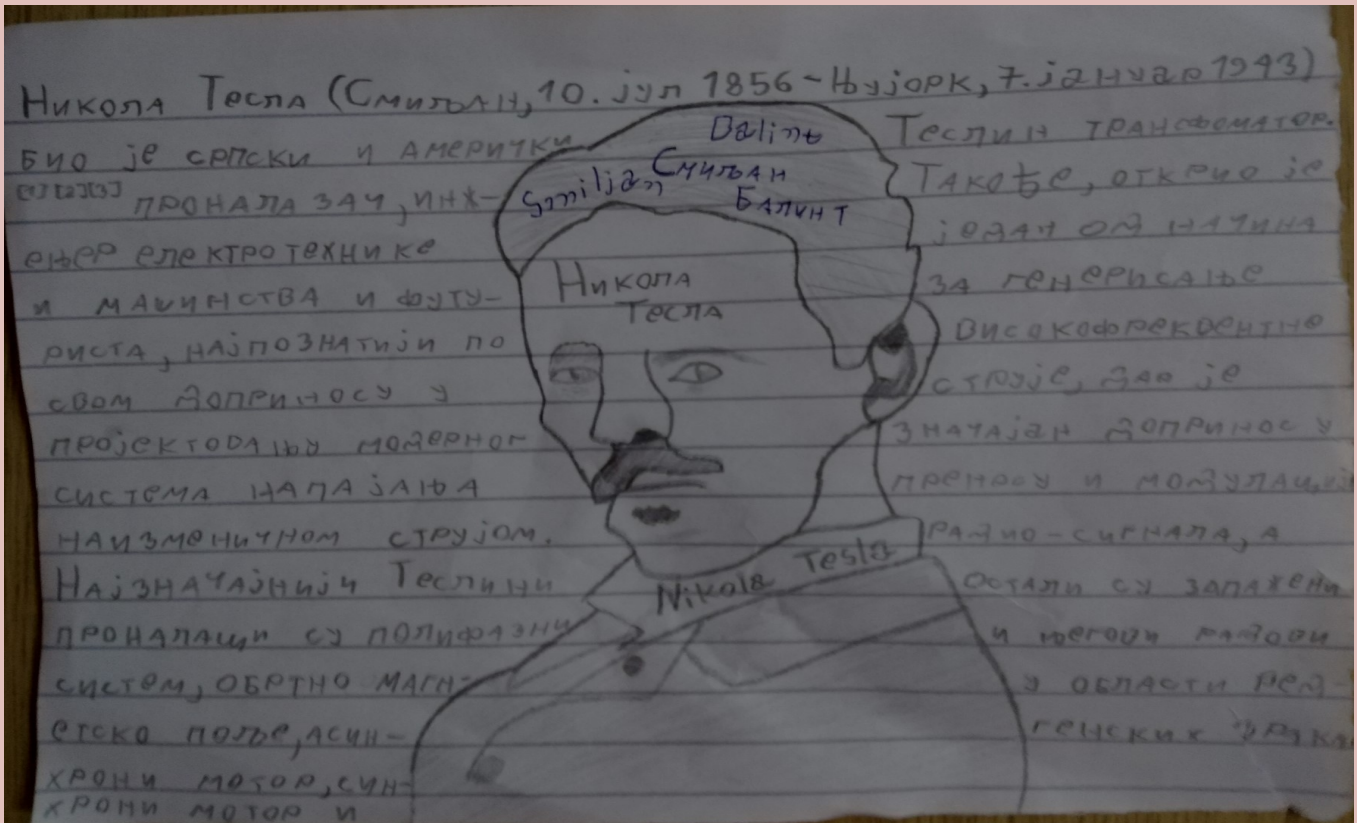 Никола Тесла (Смиљан, 10. јул 1856 – Њујорк, 7. јануар 1943)
био је српски и амерички
[1][2][3] проналазач, инж-
ењер електротехнике
и машинства и футу-
риста, најпознатији по
свом доприносу у
пројектовању модерног
система напајања
наизменичном струјом.
Најзначајнији Теслини
проналасци су полифазни
систем, обртно магн-
етско поље, асин-
хрони мотор, син-
хрони мотор и
Теслин трансфоматор.
Такође, открио је
један од начина
за генерисање
високофреквентне
струје, дао је
значајан допринос у
преносу и модулациј
радио-сигнала, а
остали су запажени
и његови радови
у области рен-
генских зрака
Balint
Smiljan Смиљан
Балинт
Никола
Тесла
Nikola Tesla